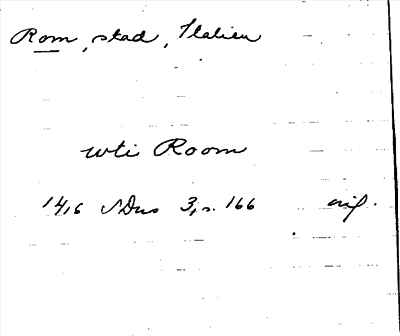 Rom, stad, Italien
wti Room
1416 SDns 3, s. 166 orig.